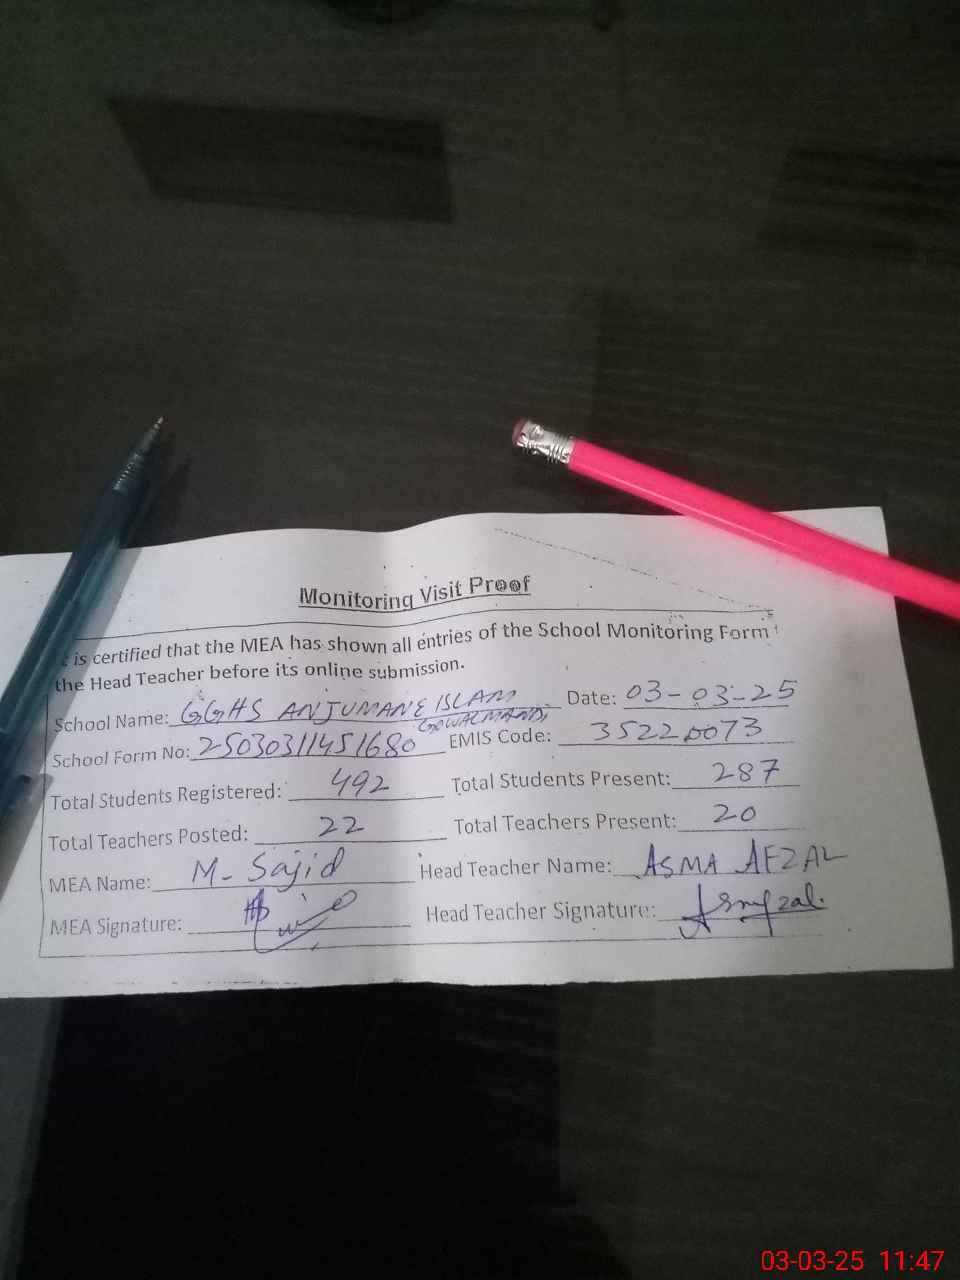 Monitoring Visit Proof
is certified that the MEA has shown all entries of the School Monitoring Form
the Head Teacher before its online submission.
School Name: GGHS ANJUMANE ISLAM Date: 03-03-25
GOWALMANDI
School Form No: 2503031145 1680 EMIS Code: 35220073
Total Students Registered: 492 Total Students Present: 287
Total Teachers Posted: 22 Total Teachers Present: 20
MEA Name: M- Sajid Head Teacher Name: ASMA AFZAL
MEA Signature: Head Teacher Signature:
03-03-25 11:47